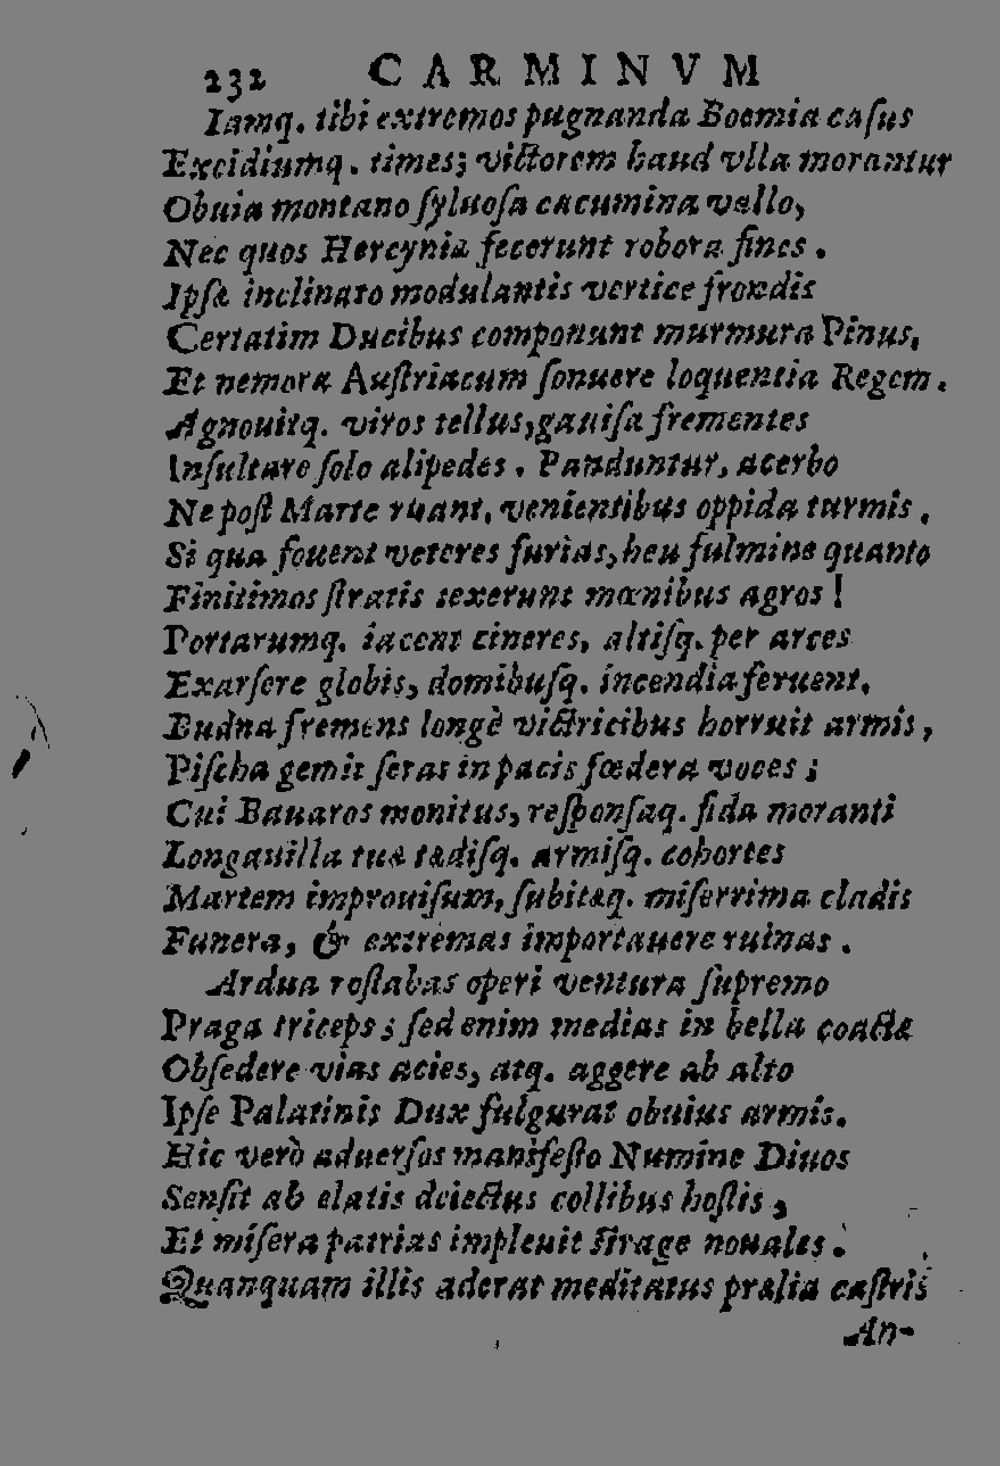 232 CARMINVM
Iamq. tibi extremos pugnanda Boemia caſus
Excidiumq. times; victorem haud vlla morantur
Obuia montano ſyluoſa cacumina vallo,
Nec quos Hercynia fecerunt robora fines.
Ipſæ inclinato modulantis vertice frondis
Certatim Ducibus componunt murmura Pinus,
Et nemora Auſtriacum ſonuere loquentia Regem.
Agnouitq. viros tellus, gauiſa frementes
Inſultare ſolo alipedes. Panduntur, acerbo
Ne poſt Marte ruant, venientibus oppida turmis.
Si qua fouent veteres furias, heu fulmine quanto
Finitimos ſtratis texerunt mœnibus agros!
Portarumq. iacent cineres, altiſq. per arces
Exarſere globis, domibuſq. incendia feruent.
Budna fremens longè victricibus horruit armis,
Piſcha gemit ſeras in pacis fœdera voces;
Cui Bauaros monitus, reſponſaq. fida moranti
Longauilla tuæ tædiſq. armiſq. cohortes
Martem improuiſum, ſubitæq. miſerrima cladis
Funera, & extremas importauere ruinas.
Ardua reſtabas operi ventura ſupremo
Praga triceps; ſed enim medias in bella coactæ
Obſedere vias acies, atq. aggere ab alto
Ipſe Palatinis Dux fulgurat obuius armis.
Hic verò aduerſos manifeſto Numine Diuos
Senſit ab elatis deiectus collibus hoſtis,
Et miſera patrias impleuit ſtrage nouales.
Quanquam illis aderat meditatus prælia caſtris
An-